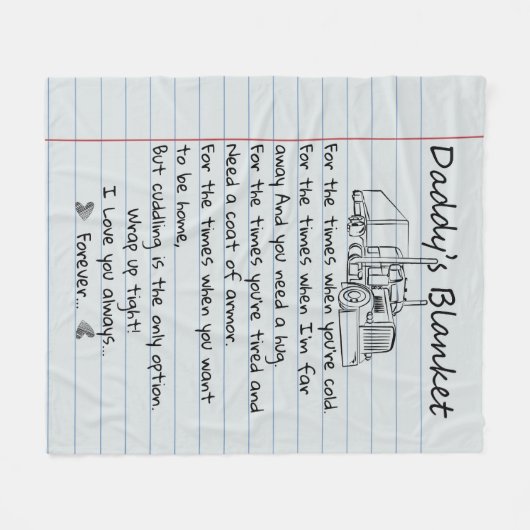 Daddy's Blanket
For the times when you're cold.
For the times when I'm far
away And you need a hug.
For the times you're tired and
Need a coat of armor.
For the times when you want
to be home,
But cuddling is the only option.
Wrap up tight!
I Love you always...
Forever...